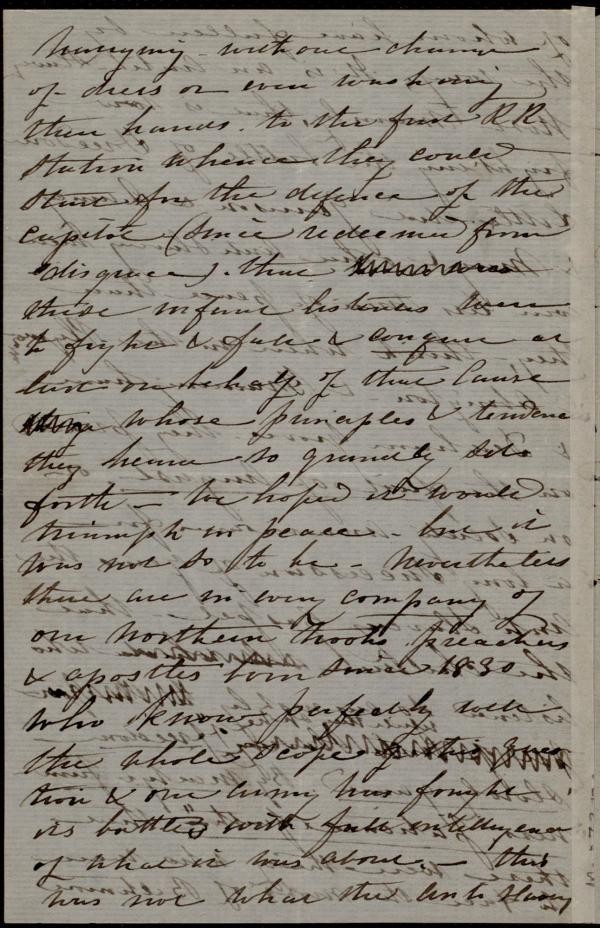 hurrying without change
of dress or even washing
their hands. to the first RR
station whence they could
start for the defence of the
capitol (since redeemed from
disgrace). that
these infant listeners were
to fight & fall & conquer at
last on behalf of that Cause
whose principles & tendencies
they heard so grandly set
forth — We hoped it would
triumph in peace — but it
was not so to be — Nevertheless
there are in every company of
our Northern troops, preachers
& apostles born since 1830
who know perfectly well
the whole scope of this ques
tion & our army has fought
its battles with full intelligence
of what it was about — this
was not what the Anti Slavery